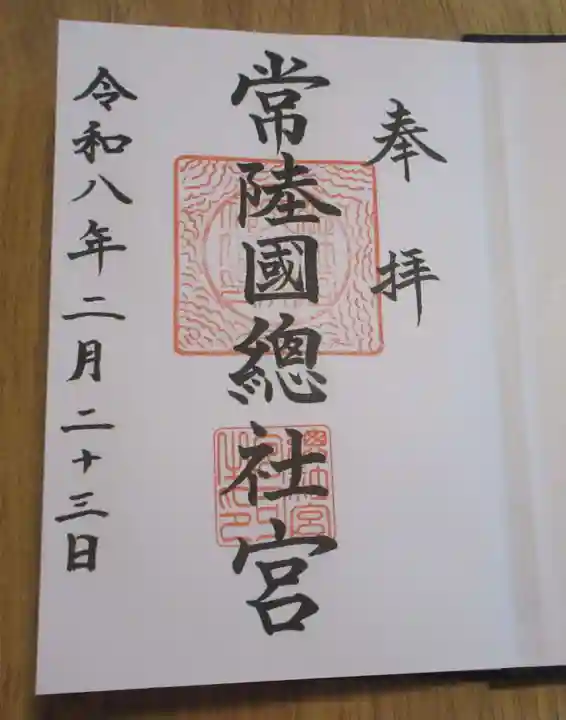 奉拝
常陸國總社宮
令和八年二月二十三日